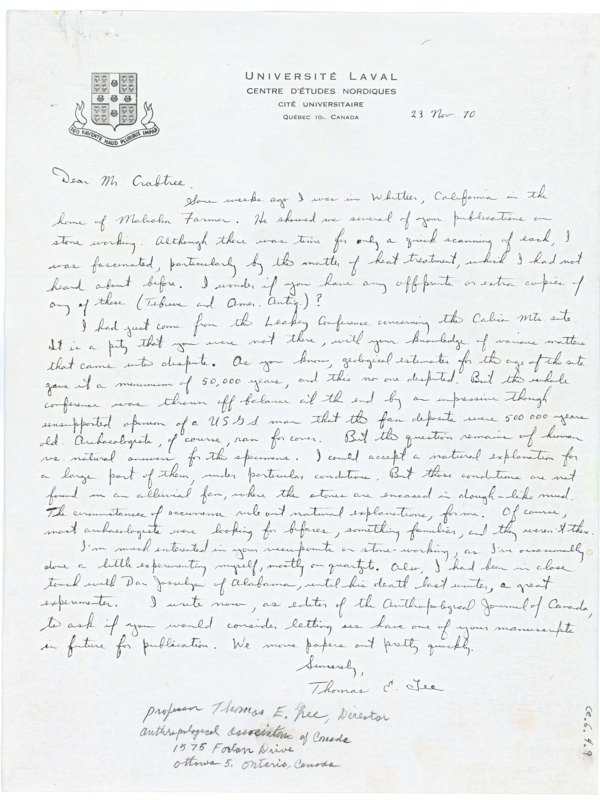 UNIVERSITÉ LAVAL
CENTRE D'ÉTUDES NORDIQUES
CITÉ UNIVERSITAIRE
QUÉBEC 10e, CANADA
23 Nov. 70
DEO FAVENTE HAUD PLURIBUS IMPAR
Dear Mr. Crabtree.
Some weeks ago I was in Whittier, California in the
home of Malcolm Farmer. He showed me several of your publications on
stone working. Although there was time for only a quick scanning of each, I
was fascinated, particularly by the matter of heat treatment, which I had not
heard about before. I wonder if you have any offprints or extra copies of
any of these (Tebiwa and Amer. Antiq.)?
I had just come from the Leakey Conference concerning the Calico Mts site.
It is a pity that you were not there, with your knowledge of various matters
that came into dispute. As you know, geological estimates for the age of the site
gave it a minimum of 50,000 years, and this no one disputed. But the whole
conference was thrown off balance at the end by an impressive though
unsupported opinion of a USGS man that the fan deposits were 500 000 years
old. Archaeologists, of course, ran for cover. But the question remains of human
vs. natural answers for the specimens. I could accept a natural explanation for
a large part of them, under particular conditions. But those conditions are not
found in an alluvial fan, where the stones are encased in dough-like mud.
The circumstances of occurrence rule out natural explanations, for me. Of course,
most archaeologists were looking for bifaces, something familiar, and they weren't there.
I'm much interested in your viewpoints on stone-working, as I've occasionally
done a little experimenting myself, mostly on quartzite. Also, I had been in close
touch with Dan Josselyn of Alabama, until his death last winter, a great
experimenter. I write now, as editor of the Anthropological Journal of Canada,
to ask if you would consider letting us have one of your manuscripts
in future for publication. We move papers out pretty quickly.
Sincerely,
Thomas E. Lee
Professor Thomas E. Lee, Director
Anthropological Association of Canada
1575 Forlan Drive
Ottawa 5. Ontario, Canada